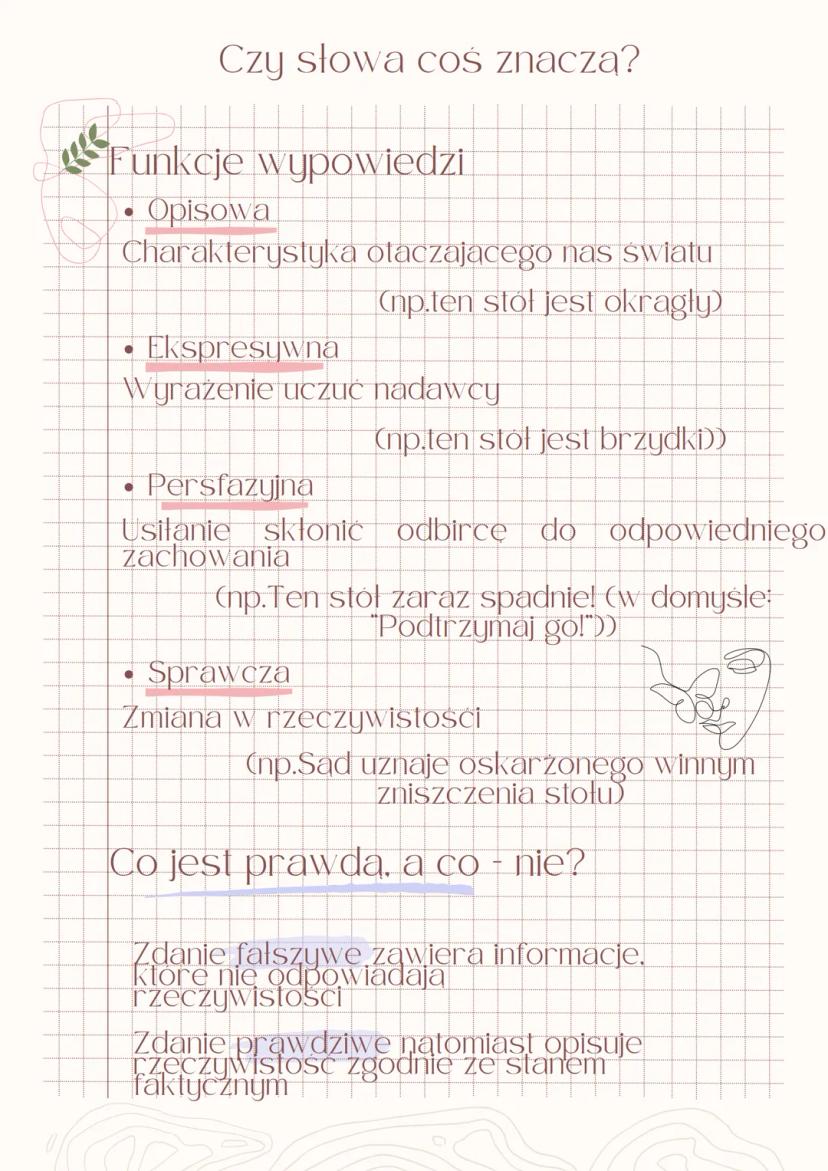 Czy słowa coś znaczą?
Funkcje wypowiedzi
• Opisowa
Charakterystyka otaczającego nas światu
(np.ten stół jest okrągły)
• Ekspresywna
Wyrażenie uczuć nadawcy
(np.ten stół jest brzydki))
• Persfazyjna
Usiłanie skłonić odbircę do odpowiedniego
zachowania
(np.Ten stół zaraz spadnie! (w domyśle:
"Podtrzymaj go!"))
• Sprawcza
Zmiana w rzeczywistości
(np.Sąd uznaje oskarżonego winnym
zniszczenia stołu)
Co jest prawdą, a co - nie?
Zdanie fałszywe zawiera informacje,
które nie odpowiadają
rzeczywistości
Zdanie prawdziwe natomiast opisuje
rzeczywistość zgodnie ze stanem
faktycznym